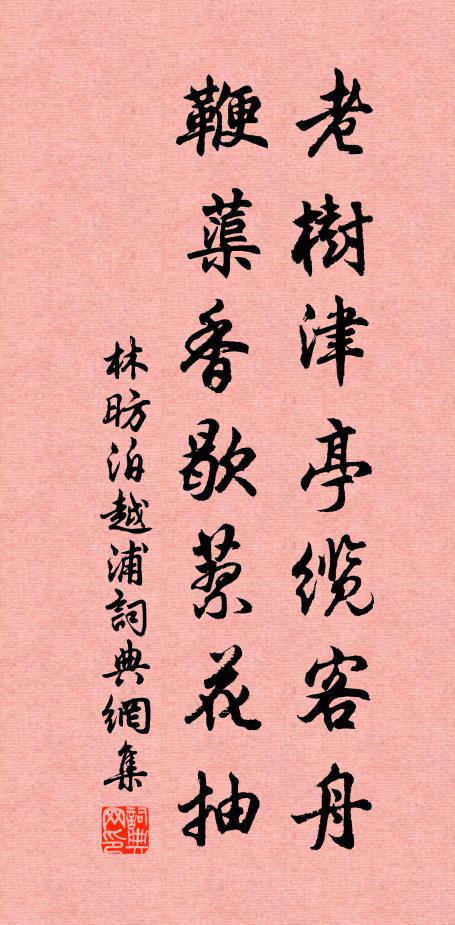 老樹津亭纜客舟
鞭蕖香歇蓼花抽
林昉泊越浦詞典網集
詞典网印